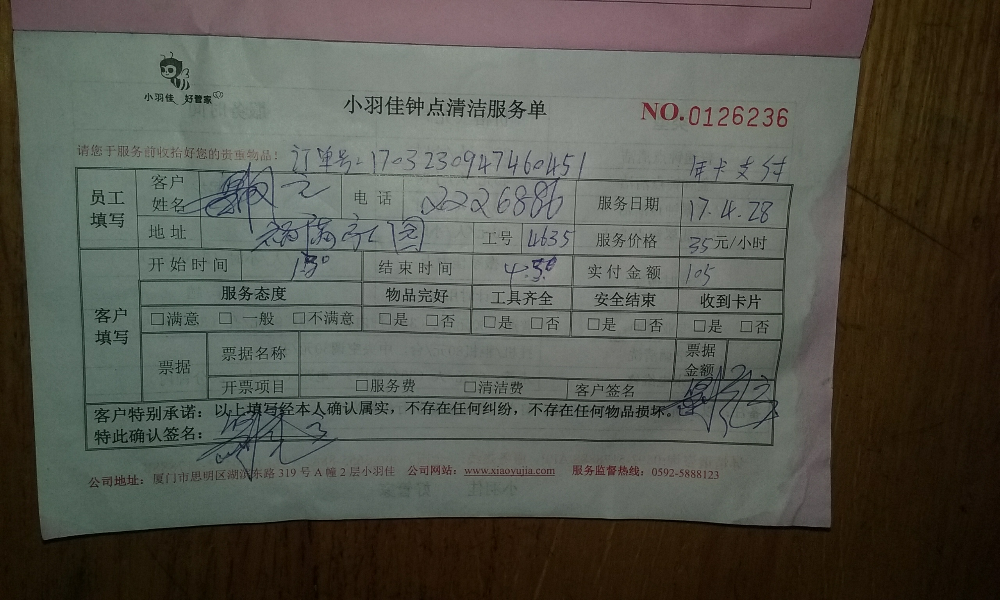 小羽佳 好管家
小羽佳钟点清洁服务单
NO.0126236
请您于服务前收拾好您的贵重物品! 订单号:170323094746045​1 年卡支付
员工填写 客户姓名 电话 2226886 服务日期 17.4.28
地址 工号 4635 服务价格 35元/小时
开始时间 结束时间 实付金额 105
客户填写 服务态度 物品完好 工具齐全 安全结束 收到卡片
□满意 □一般 □不满意 □是 □否 □是 □否 □是 □否 □是 □否
票据 票据名称 票据金额
开票项目 □服务费 □清洁费 客户签名
客户特别承诺:以上填写经本人确认属实,不存在任何纠纷,不存在任何物品损坏。
特此确认签名:
公司地址:厦门市思明区湖滨东路 319 号 A 幢 2 层小羽佳 公司网站:www.xiaoyujia.com 服务监督热线:0592-5888123